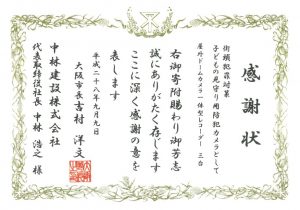 感謝状
街頭犯罪対策
子どもの見守り用防犯カメラとして
屋外ドームカメラ一体型レコーダー 三台
右御寄附賜わり御芳志
誠にありがたく存じます
ここに深く感謝の意を
表します
平成二十八年九月九日
大阪市長 吉村 洋文
中林建設株式会社
代表取締役社長 中林 浩之 様